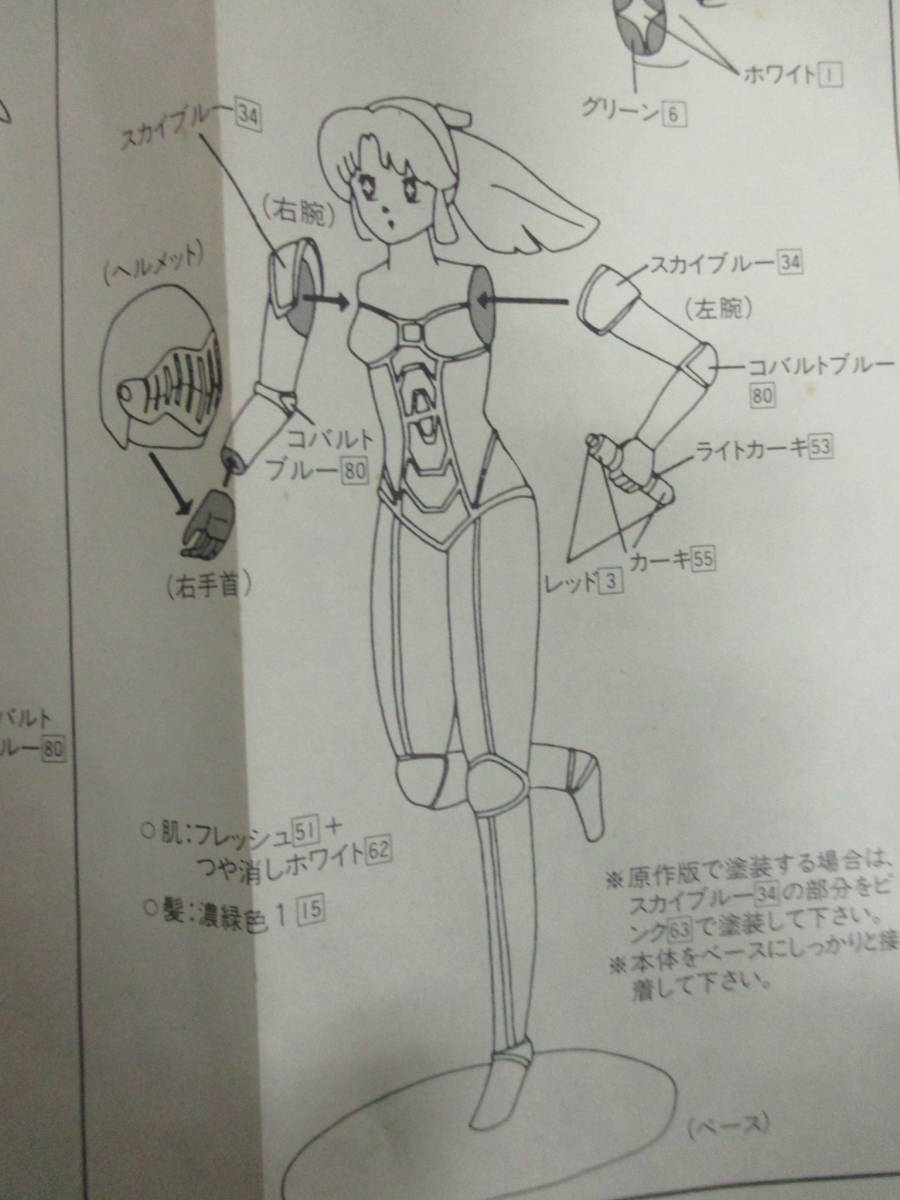 ホワイト1
グリーン6
スカイブルー34
(右腕)
(ヘルメット)
スカイブルー34
(左腕)
コバルトブルー
80
コバルト
ブルー80
ライトカーキ53
カーキ55
レッド3
(右手首)
バルト
ルー80
○肌:フレッシュ51+
つや消しホワイト62
○髪:濃緑色1 15
※原作版で塗装する場合は、
スカイブルー34の部分をピ
ンク63で塗装して下さい。
※本体をベースにしっかりと接
着して下さい。
(ベース)